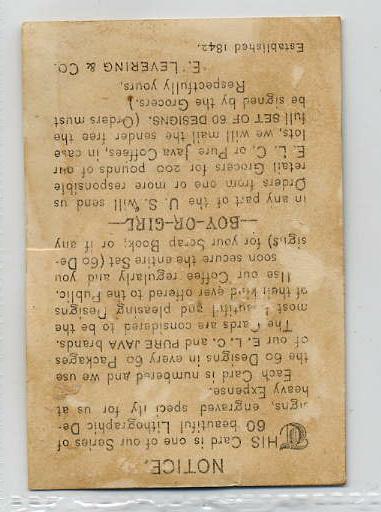 NOTICE.
THIS Card is one of our Series of
60 beautiful Lithographic De-
signs, engraved for us at
heavy Expense.
Each Card is numbered and we use
the 60 Designs in every 60 Packages
of our E. L. C. and PURE JAVA brands.
The Cards are considered to be the
most and pleasing Designs
of their kind ever offered to the Public.
Use our Coffee regularly and you
soon secure the entire Set (60 De-
signs) for your Scrap Book; or if any
—BOY-OR-GIRL—
in any part of the U. S. will send us
Orders from one or more responsible
retail Grocers for 200 pounds of our
E. L. C. or Pure Java Coffees, in case
lots, we will mail the sender free the
full SET OF 60 DESIGNS. (Orders must
be signed by the Grocers.)
Respectfully yours,
E. LEVERING & CO.
Established 1842.